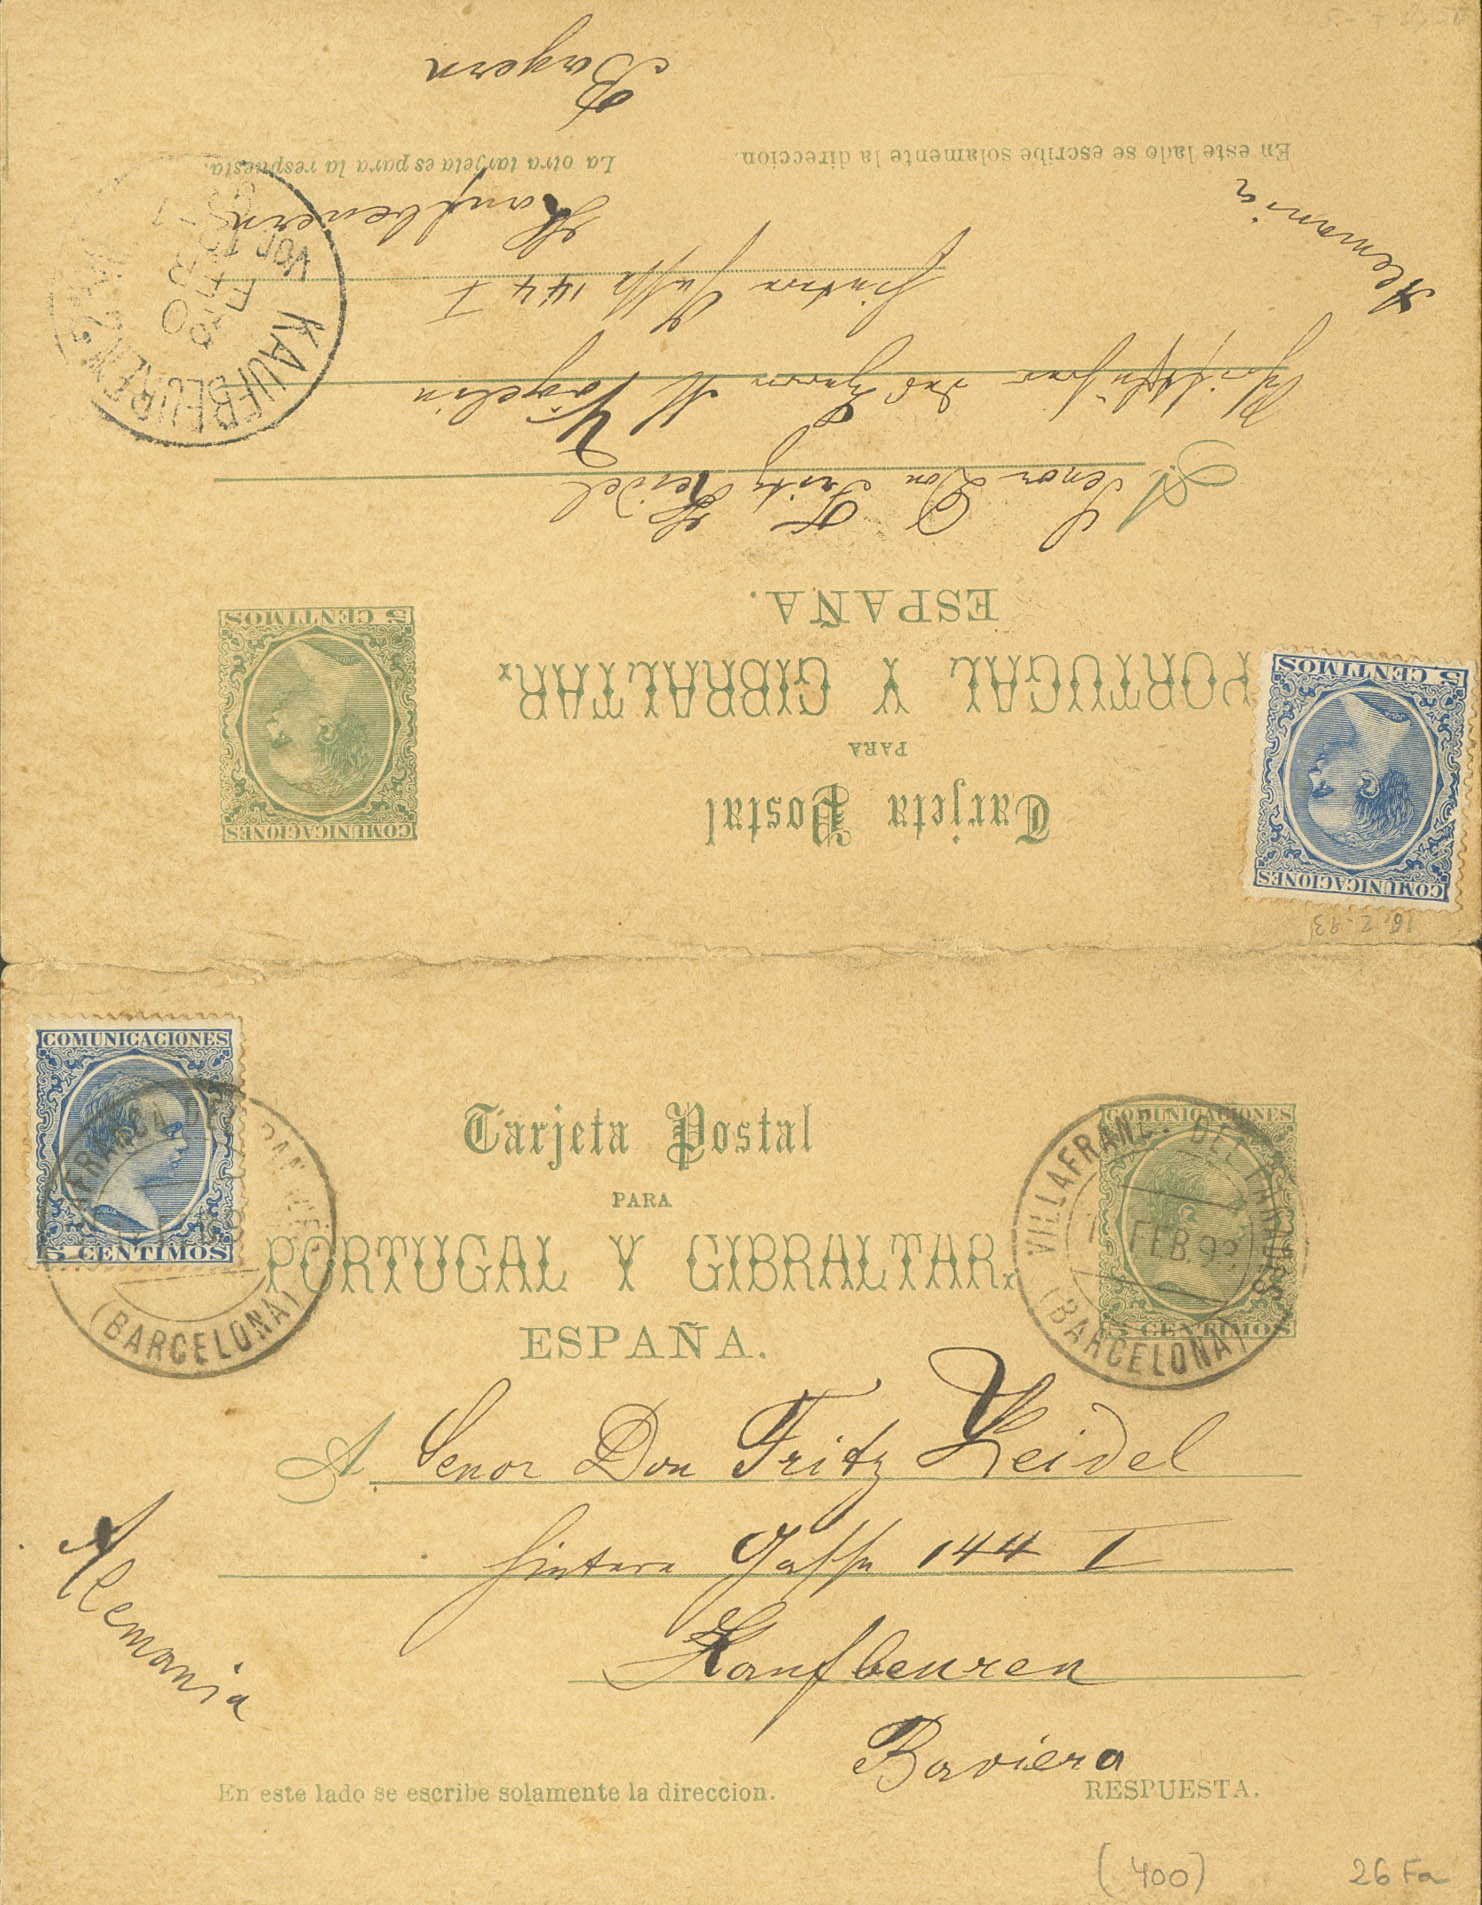 En este lado se escribe solamente la direccion.
La otra tarjeta es para la respuesta.
Bayern
Kaufbeuren
Alemania
hintere Gasse 144 I
des Herrn M Vögelin
A Senor Don Fritz Keidel
ESPAÑA.
PORTUGAL Y GIBRALTAR.
PARA
Tarjeta Postal
COMUNICACIONES
5 CENTIMOS
COMUNICACIONES
5 CENTIMOS
KAUFBEUREN
20
FEB
VOR
16.2.93
COMUNICACIONES
5 CENTIMOS
(BARCELONA)
Tarjeta Postal
PARA
PORTUGAL Y GIBRALTAR.
ESPAÑA.
COMUNICACIONES
5 CENTIMOS
VILLAFRANC. DEL PANADES
FEB. 93
(BARCELONA)
A Senor Don Fritz Keidel
hintere Gasse 144 I
Kaufbeuren
Baviera
Alemania
En este lado se escribe solamente la direccion.
RESPUESTA.
(400)
26 Fa